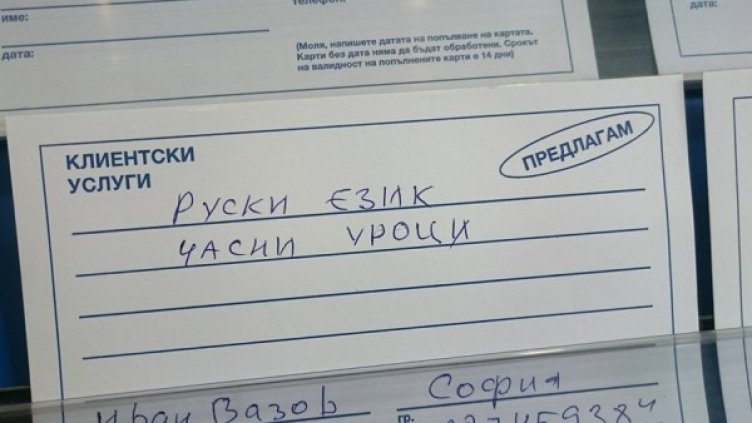 име:
дата:
(Моля, напишете датата на попълване на картата.
Карти без дата няма да бъдат обработени. Срокът
на валидност на попълнените карти е 14 дни)
дата:
КЛИЕНТСКИ
УСЛУГИ
ПРЕДЛАГАМ
РУСКИ ЕЗИК
ЧАСНИ УРОЦИ
Иван Вазов
София
гр.